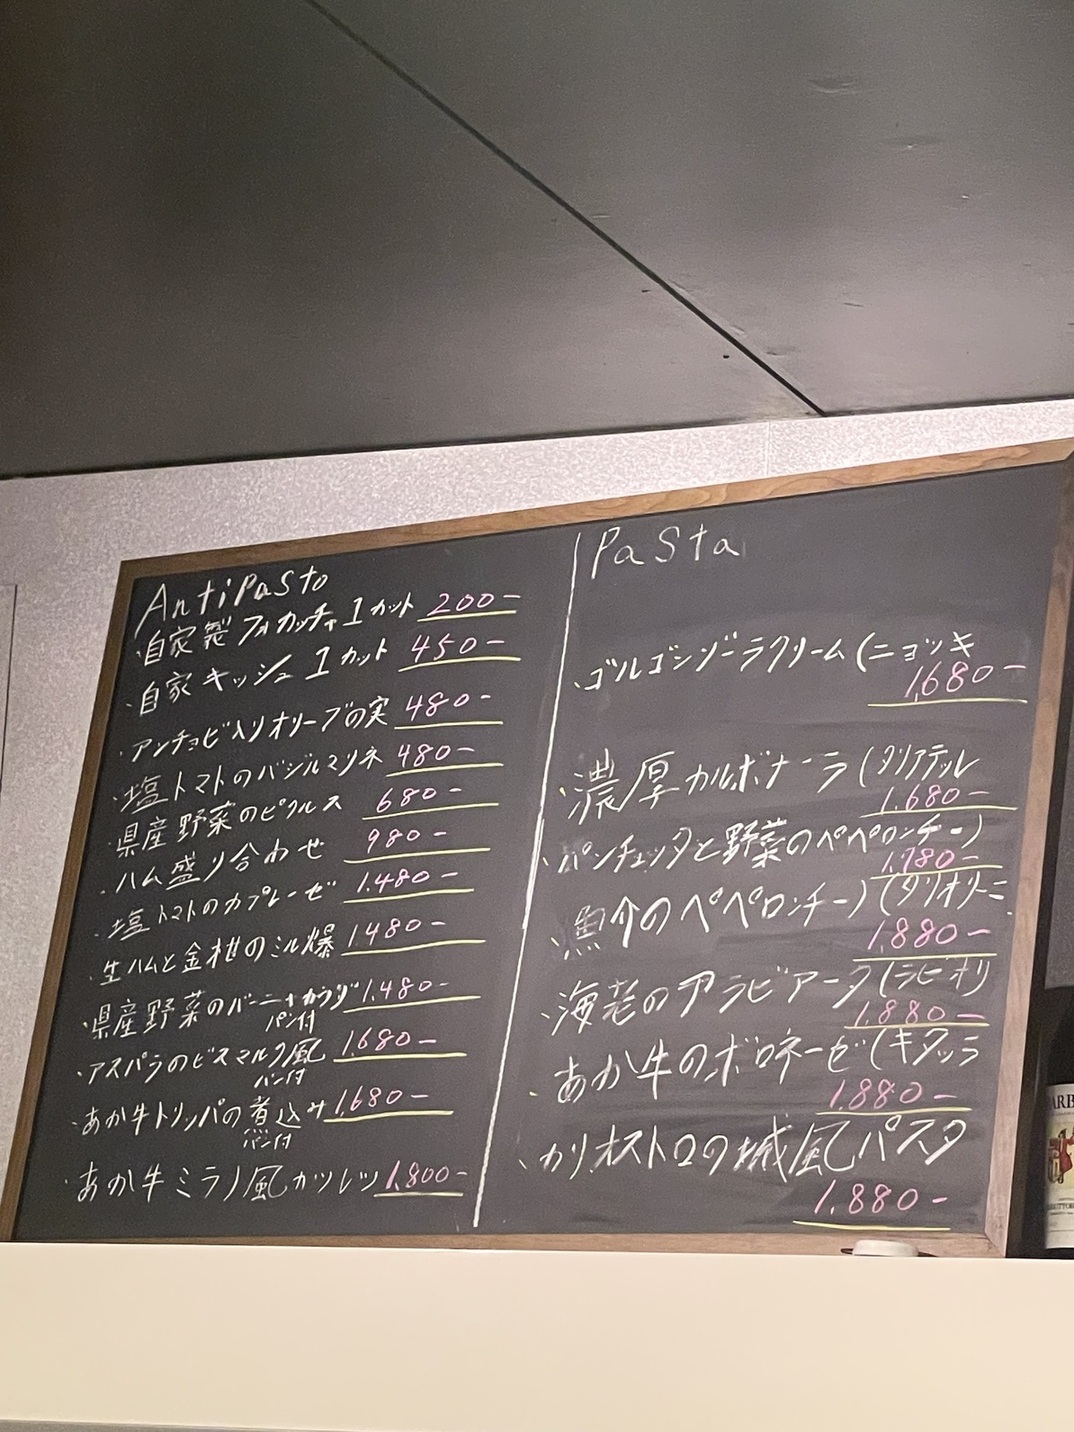 AntiPasto
・自家製フォカッチャ1カット 200-
・自家キッシュ 1カット 450-
・アンチョビ入りオリーブの実 480-
・塩トマトのバジルマリネ 480-
・県産野菜のピクルス 680-
・ハム盛り合わせ 980-
・塩トマトのカプレーゼ 1.480-
・生ハムと金柑のミル爆 1.480-
・県産野菜のバーニャカウダ 1.480-
パン付
・アスパラのビスマルク風 1.680-
パン付
・あか牛トリッパの煮込み 1.680-
パン付
・あか牛ミラノ風カツレツ 1.800-
Pasta
・ゴルゴンゾーラクリーム(ニョッキ
1.680-
・濃厚カルボナーラ(タリアテッレ
1.680-
・パンチェッタと野菜のペペロンチーノ
1.780-
・魚介のペペロンチーノ(タリオリーニ
1.880-
・海老のアラビアータ(ラビオリ
1.880-
・あか牛のボロネーゼ(キタッラ
1.880-
・カリオストロの城風パスタ
1.880-